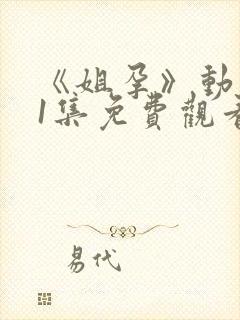 《姐孕》動
1集免費觀看
易代